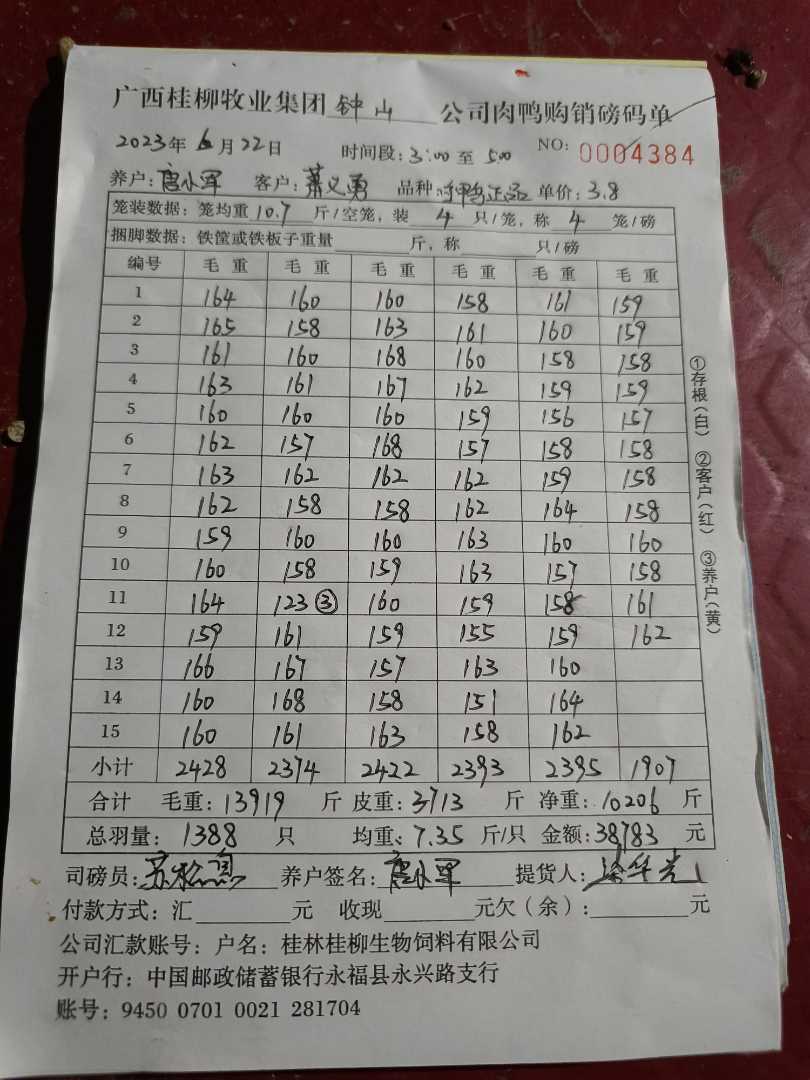 广西桂柳牧业集团 钟山 公司肉鸭购销磅码单
2023年 6月 22日 时间段: 3:00 至 500 NO: 0004384
养户: 唐小军 客户: 萧义勇 品种: 正品 单价: 3.8
笼装数据: 笼均重 10.7 斤/空笼, 装 4 只/笼, 称 4 笼/磅
捆脚数据: 铁筐或铁板子重量 斤, 称 只/磅
编号 毛重 毛重 毛重 毛重 毛重 毛重
1 164 160 160 158 161 159
2 165 158 163 161 160 159
3 161 160 168 160 158 158
4 163 161 167 162 159 159
5 160 160 160 159 156 157
6 162 157 168 157 158 158
7 163 162 162 162 159 158
8 162 158 158 162 164 158
9 159 160 160 163 160 160
10 160 158 159 163 157 158
11 164 123③ 160 159 158 161
12 159 161 159 155 159 162
13 166 167 157 163 160
14 160 168 158 151 164
15 160 161 163 158 162
小计 2428 2374 2422 2393 2395 1907
合计 毛重: 13919 斤 皮重: 3713 斤 净重: 10206 斤
总羽量: 1388 只 均重: 7.35 斤/只 金额: 38783 元
司磅员: 养户签名: 唐小军 提货人:
付款方式: 汇 元 收现 元欠(余): 元
公司汇款账号: 户名: 桂林桂柳生物饲料有限公司
开户行: 中国邮政储蓄银行永福县永兴路支行
账号: 9450 0701 0021 281704
①存根(白) ②客户(红) ③养户(黄)